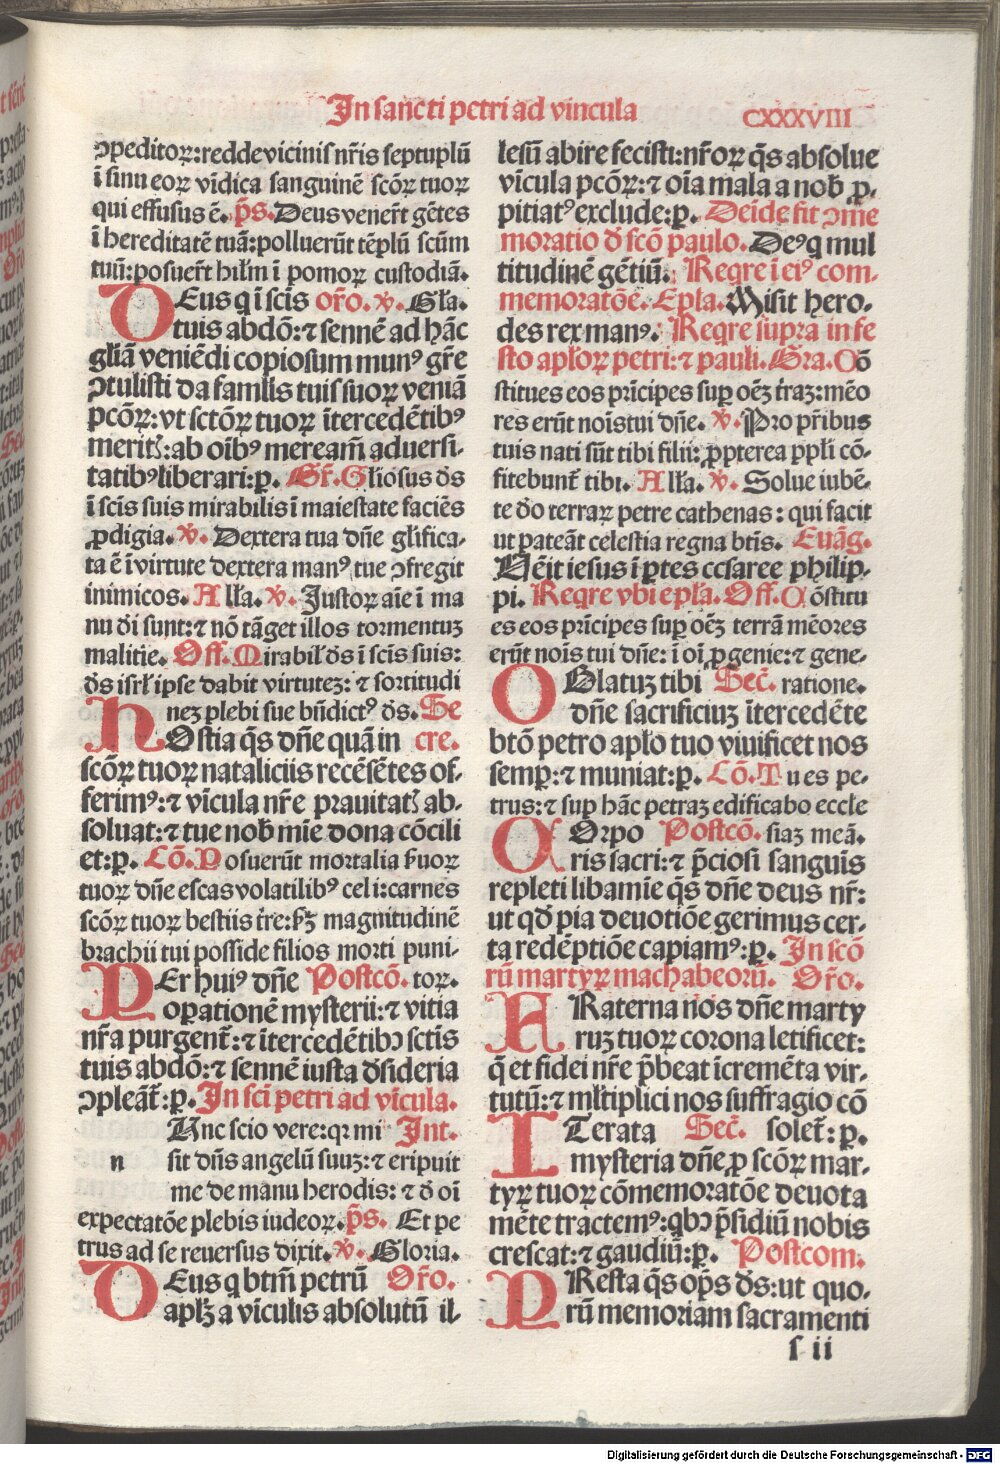 In sancti petri ad vincula
CXXXVIII
ꝯpeditoꝝ: redde vicinis nr̄is septuplū
ī sinu eoꝝ vīdica sanguinē scōꝝ tuoꝝ
qui effusus ē. p̄s. Deus venerūt gētes
ī hereditatē tuā: polluerūt tēplū scūm
tuū: posuerūt hilr̄m ī pomoꝝ custodiā.
DEus q ī scīs or̄o. ℣. Gl̄a.
tuis abdō: ⁊ sennē ad hāc
gl̄iā veniēdi copiosum munꝰ gr̄e
ꝯtulisti da famul̄is tuis suoꝝ veniā
pcōꝝ: vt sctōꝝ tuoꝝ ītercedētibꝰ
meritꝭ: ab oībꝰ meream̄ aduersi-
tatibꝰ liberari: ꝑ. Gr̄. Gl̄iosus d̄s
ī scīs suis mirabilis ī maiestate faciēs
ꝓdigia. ℣. Dextera tua dn̄e gl̄ifica-
ta ē ī virtute dextera manꝰ tue ꝯfregit
inimicos. All̄a. ℣. Justoꝝ aīe ī ma
nu d̄i sunt: ⁊ nō tāget illos tormentuꝫ
malitie. Off. Mirabil̄ d̄s ī scīs suis:
d̄s isrl̄ ipse dabit virtuteꝫ: ⁊ fortitudi
neꝫ plebi sue bn̄dictꝰ d̄s. Se
HOstia q̄s dn̄e quā in cre.
scōꝝ tuoꝝ nataliciis recēsētes of-
ferimꝰ: ⁊ vīcula nr̄e prauitatꝭ ab-
soluat: ⁊ tue nob̄ mīe dona cōcili
et: ꝑ. Cō. Posuerūt mortalia s̄uoꝝ
tuoꝝ dn̄e escas volatilibꝰ celi: carnes
scōꝝ tuoꝝ bestiis t̄re: s̄ꝫ magnitudinē
brachii tui posside filios morti puni-
PEr huiꝰ dn̄e Postcō. toꝝ.
oꝑationē mysterii: ⁊ vitia
nr̄a purgent̄: ⁊ ītercedētibꝰ sctīs
tuis abdō: ⁊ sennē iusta d̄sideria
ꝯpleāt̄: ꝑ. In scī petri ad vīcula.
Nnc scio vere: qꝛ mi Int.
n sit dn̄s angelū suuꝫ: ⁊ eripuit
me de manu herodis: ⁊ d̄ oī
expectatōe plebis iudeoꝝ. p̄s. Et pe
trus ad se reuersus dixit. ℣. Gloria.
DEus q btm̄ petrū Or̄o.
apl̄ꝫ a vīculis absolutū il-
lesū abire fecisti: nr̄oꝝ q̄s absolue
vīcula pcōꝝ: ⁊ oīa mala a nob̄ ꝓ-
pitiatꝰ exclude: ꝑ. Deīde fit ꝯme
moratio d̄ scō paulo. Deꝰ q mul
titudinē gētiū. Reqre ī eiꝰ com-
memoratōe. Epl̄a. Misit hero-
des rex manꝰ. Reqre supra in fe
sto apl̄oꝝ petri: ⁊ pauli. Gra. Cō
stitues eos prīcipes suꝑ oēꝫ t̄raꝫ: mēo
res erūt noīs tui dn̄e. ℣. Pro pr̄ibus
tuis nati sūt tibi filii: ꝓpterea ppl̄i cō-
fitebunt̄ tibi. All̄a. ℣. Solue iubē-
te d̄o terraꝝ petre cathenas: qui facit
ut pateāt celestia regna bt̄is. Euāg.
Uēit iesus ī ꝑtes cesaree philip-
pi. Reqre vbi epl̄a. Off. Cōstitu
es eos prīcipes suꝑ oēꝫ terrā mēores
erūt noīs tui dn̄e: ī oī ꝓgenie: ⁊ gene-
OBlatuꝫ tibi Sec̄. ratione.
dn̄e sacrificiuꝫ ītercedēte
btō petro apl̄o tuo viuificet nos
semꝑ: ⁊ muniat: ꝑ. Cō. Tu es pe-
trus: ⁊ suꝑ hāc petraꝫ edificabo eccle
COrpo Postcō. siaꝫ meā.
ris sacri: ⁊ p̄ciosi sanguīs
repleti libamīe q̄s dn̄e deus nr̄:
ut qd̄ pia deuotiōe gerimus cer-
ta redēptiōe capiamꝰ: ꝑ. In scō
rū martyꝝ machabeorū. Or̄o.
FRaterna nos dn̄e marty
ruꝫ tuoꝝ corona letificet:
q̄ et fidei nr̄e p̄beat īcremēta vir-
tutū: ⁊ ml̄tiplici nos suffragio cō
ITerata Sec̄. solet̄: ꝑ.
mysteria dn̄e ꝓ scōꝝ mar-
tyꝝ tuoꝝ cōmemoratōe deuota
mēte tractemꝰ: qbꝰ p̄sidiū nobis
crescat: ⁊ gaudiū: ꝑ. Postcom.
PResta q̄s op̄s d̄s: ut quo-
rū memoriam sacramenti
s ii
Digitalisierung gefördert durch die Deutsche Forschungsgemeinschaft - DFG